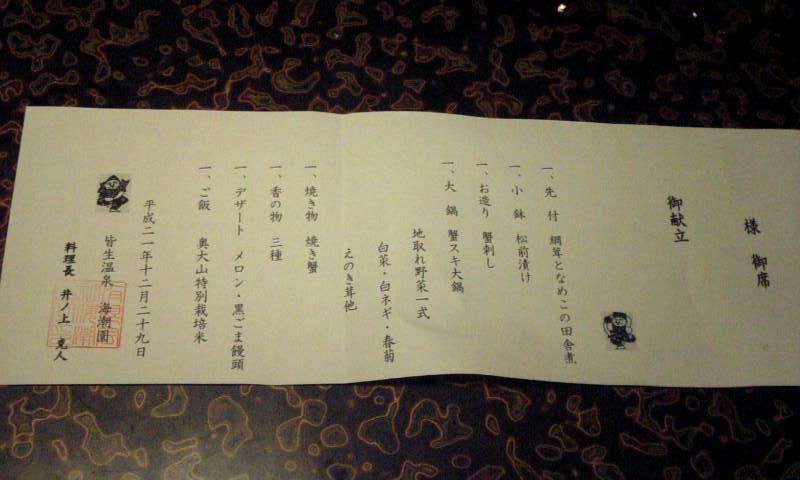 様 御席
御献立
一、先 付 網茸となめこの田舎煮
一、小 鉢 松前漬け
一、お造り 蟹刺し
一、大 鍋 蟹スキ大鍋
地取れ野菜一式
白菜・白ネギ・春菊
えのき茸他
一、焼き物 焼き蟹
一、香の物 三種
一、デザート メロン・黒ごま饅頭
一、ご飯 奥大山特別栽培米
平成二一年十二月二十九日
皆生温泉 海潮園
料理長 井ノ上 克人